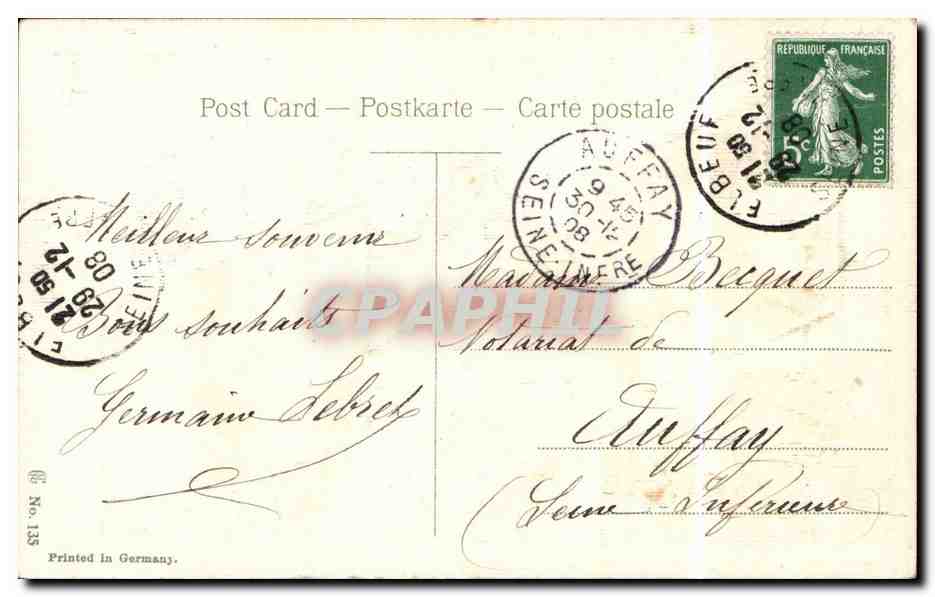 Post Card — Postkarte — Carte postale
REPUBLIQUE FRANÇAISE
5c
POSTES
ELBEUF
21 50
29 -12
08
AUFFAY
9 45
30 -12
08
SEINE INFRE
ELB
21 50
29 -12
08
SEINE INFRE
Meilleur souvenir
Bons souhaits
Germaine Lebret
Madame Becquet
Notariat de
Auffay
(Seine Inférieure)
CPAPHIL
No. 135
Printed in Germany.